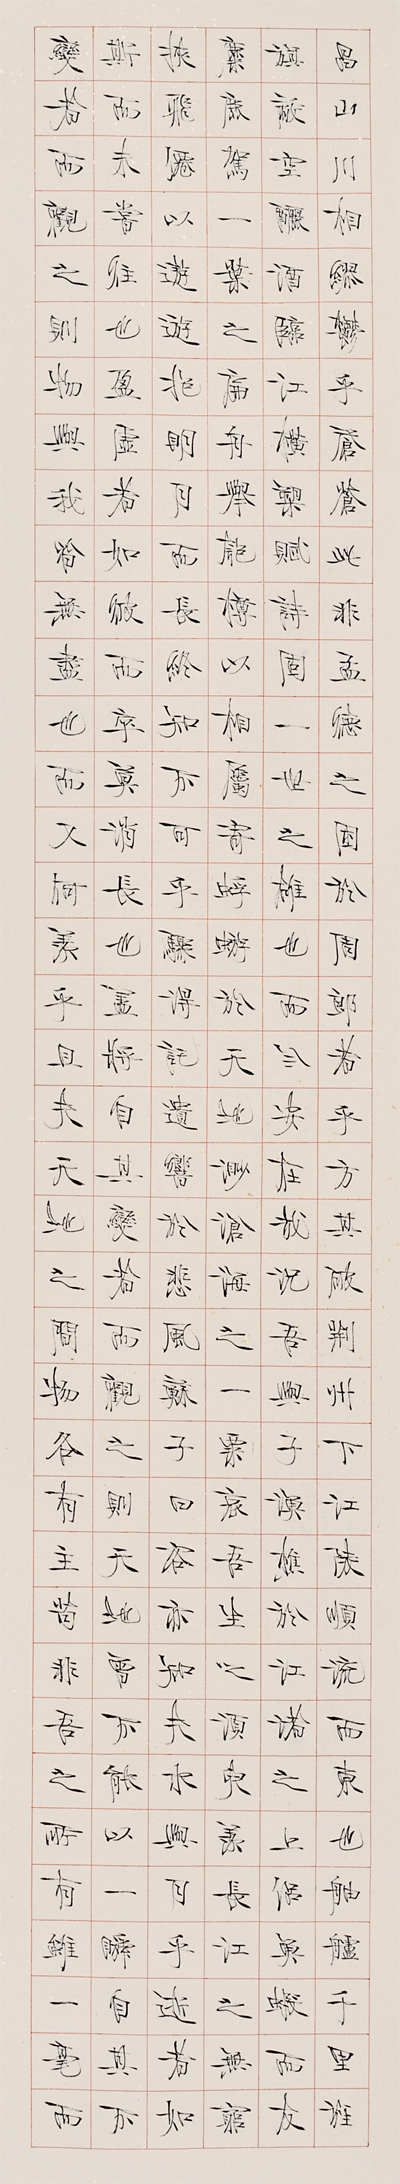 昌山川相繆鬱乎蒼蒼此非孟德之困於周郎者乎方其破荊州下江陵順流而東也舳艫千里旌
旗蔽空釃酒臨江橫槊賦詩固一世之雄也而今安在哉況吾與子漁樵於江渚之上侶魚蝦而友
麋鹿駕一葉之扁舟舉匏樽以相屬寄蜉蝣於天地渺滄海之一粟哀吾生之須臾羨長江之無窮
挾飛仙以遨遊抱明月而長終知不可乎驟得託遺響於悲風蘇子曰客亦知夫水與月乎逝者如
斯而未嘗往也盈虛者如彼而卒莫消長也蓋將自其變者而觀之則天地曾不能以一瞬自其不
變者而觀之則物與我皆無盡也而又何羨乎且夫天地之間物各有主苟非吾之所有雖一毫而